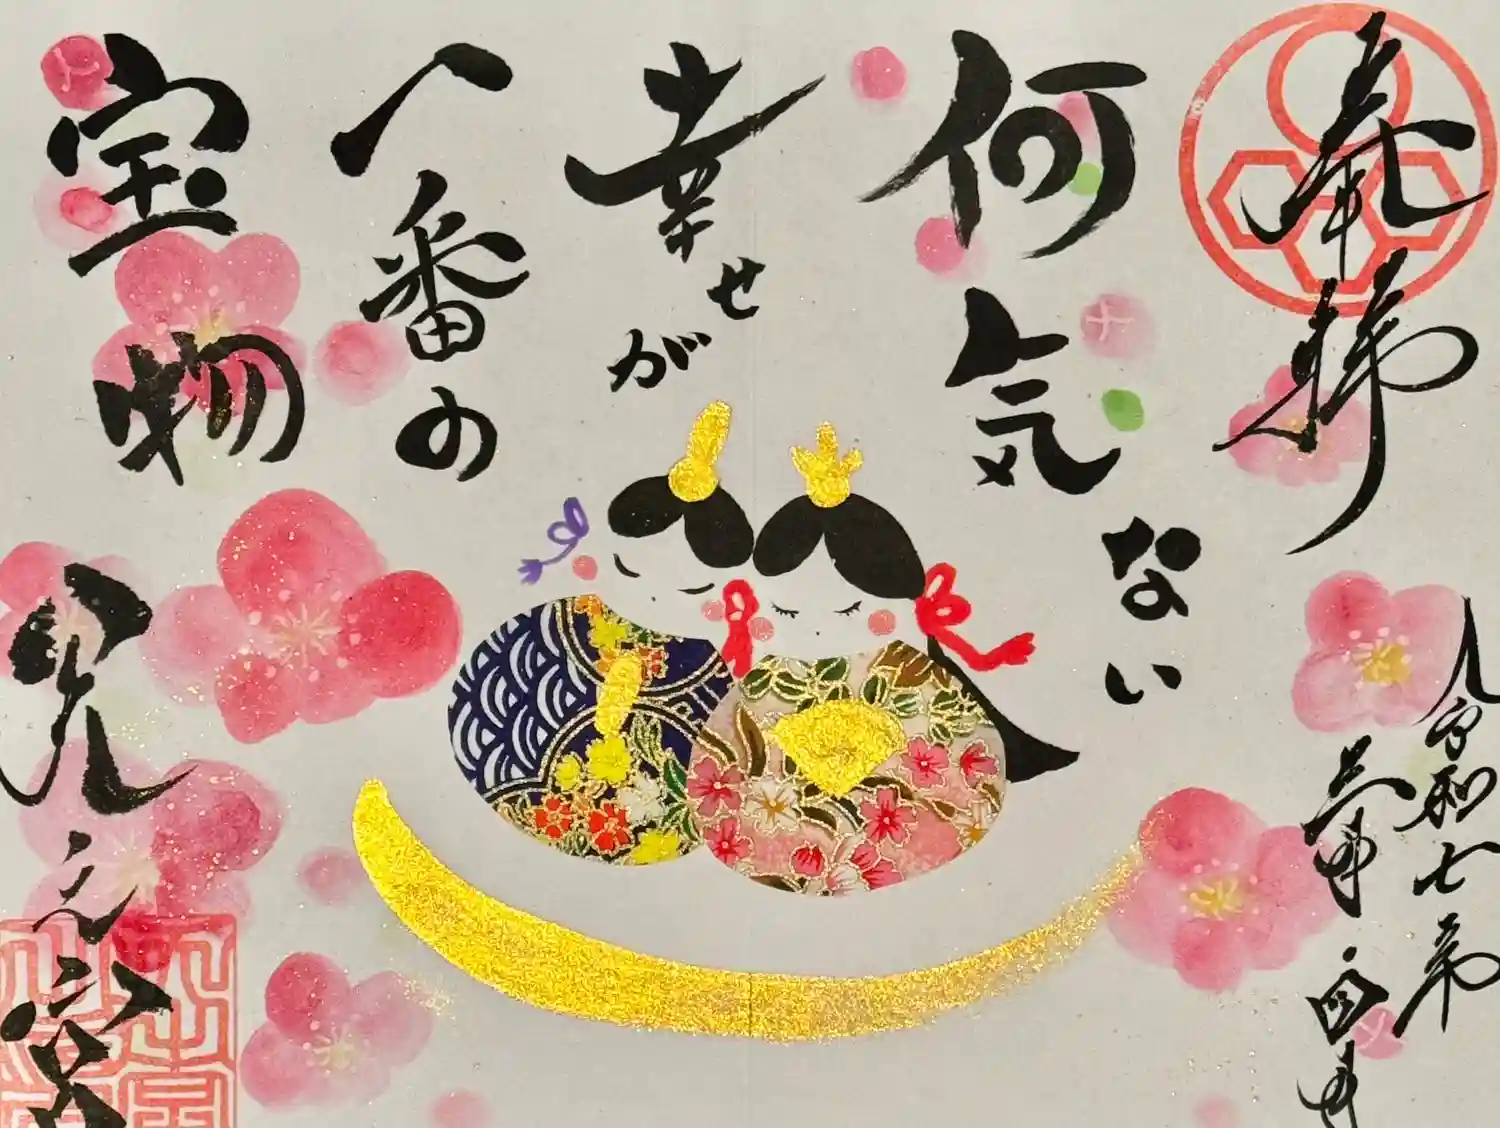 奉拝
令和七年
三月
何気ない
幸せが
一番の
宝物